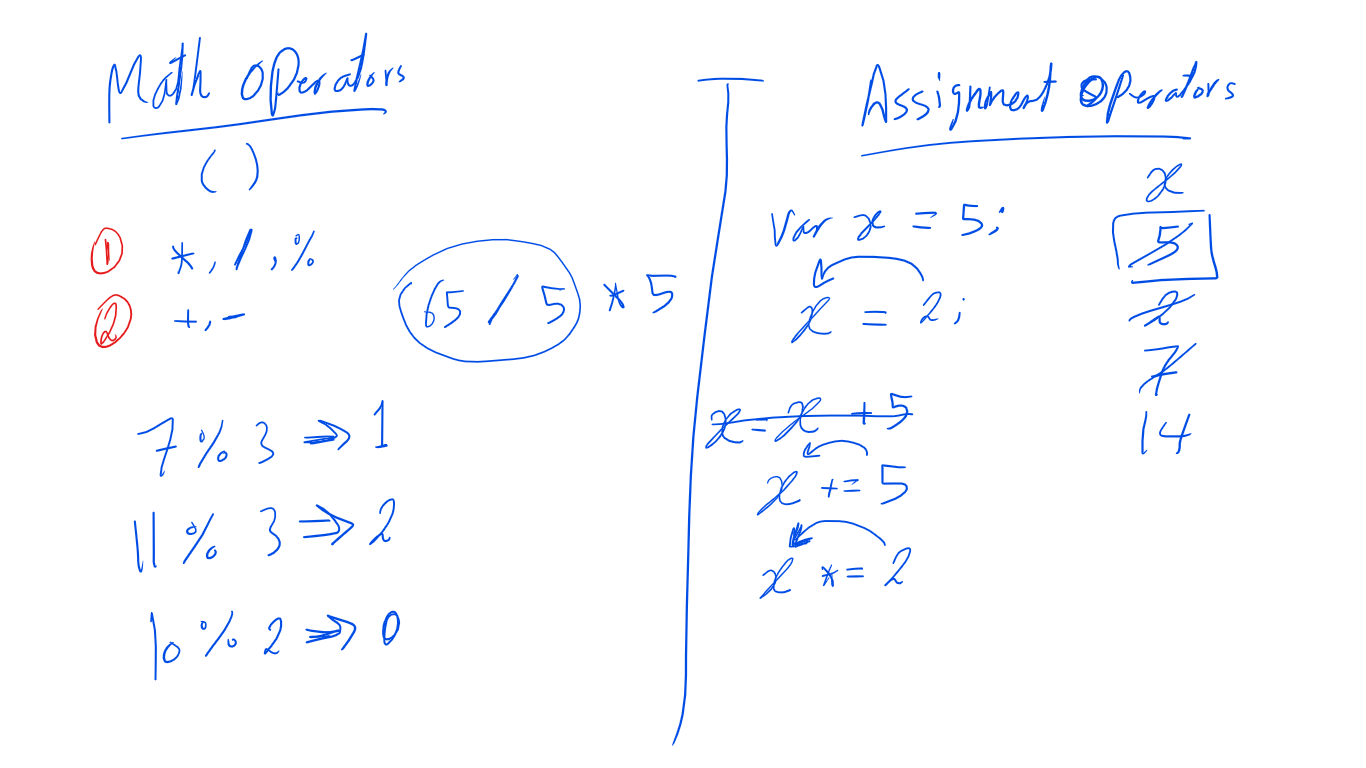 Math Operators
( )
① *, /, %
② +, -
65 / 5 * 5
7 % 3 ⇒ 1
11 % 3 ⇒ 2
10 % 2 ⇒ 0
Assignment Operators
x
var x = 5;
5
x = 2;
2
7
x = x + 5
14
x += 5
x *= 2